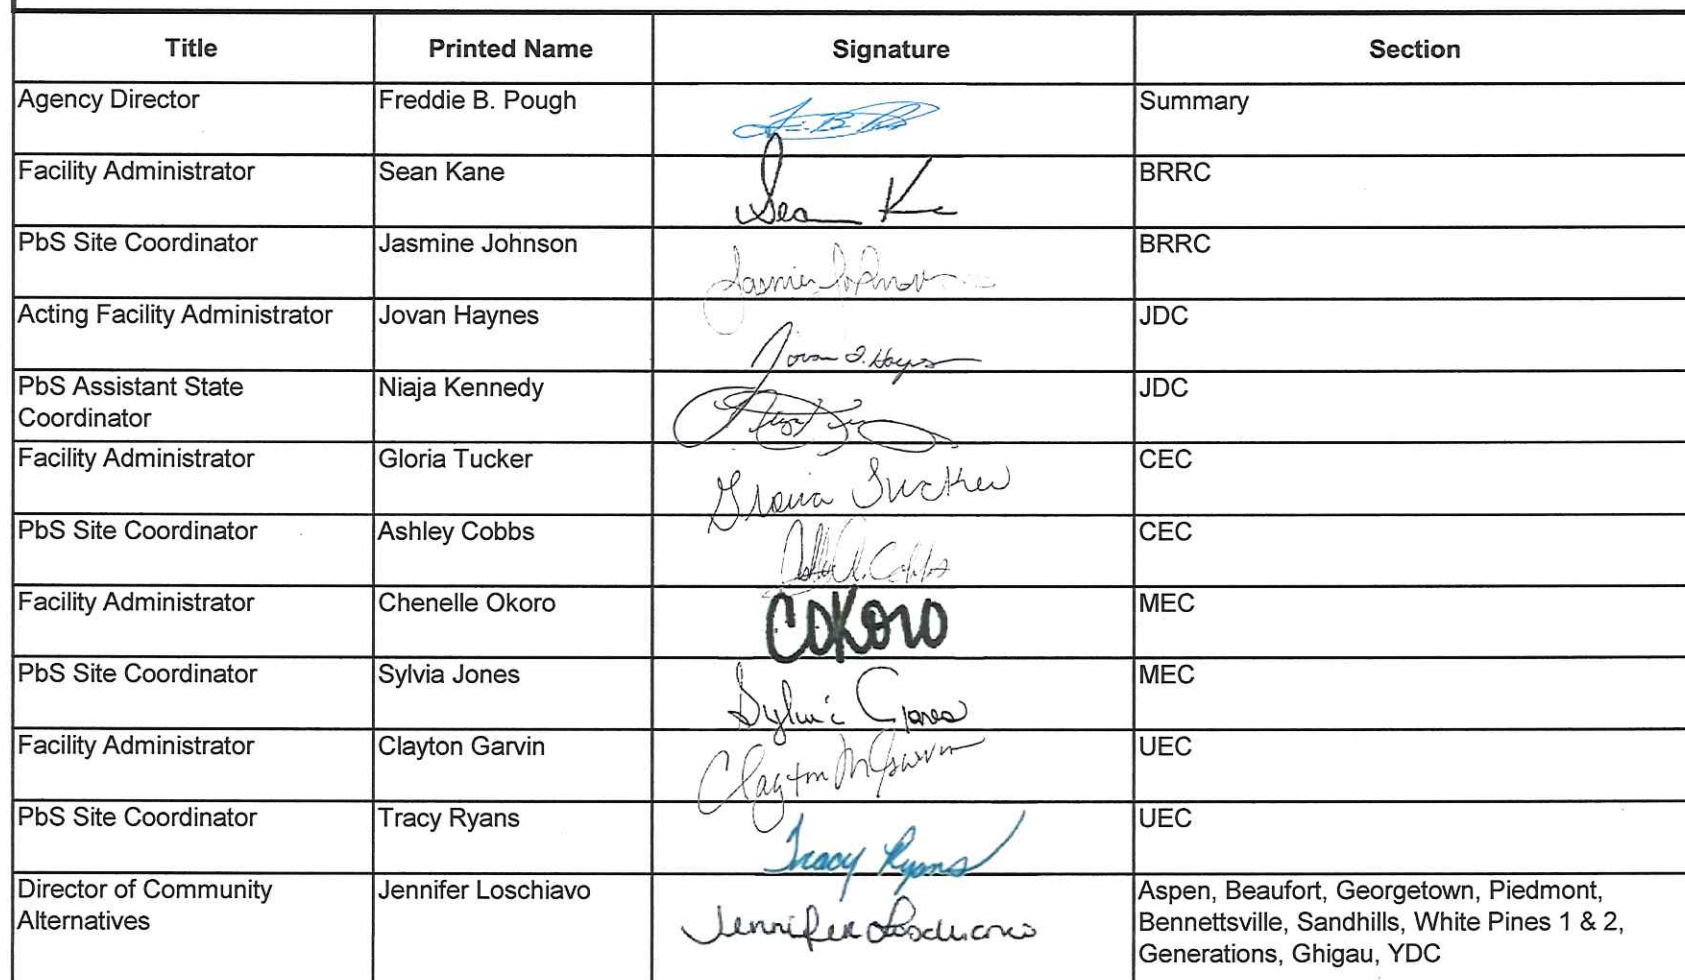 Title Printed Name Signature Section
Agency Director Freddie B. Pough Summary
Facility Administrator Sean Kane Sean K BRRC
PbS Site Coordinator Jasmine Johnson Jasmine Johnson BRRC
Acting Facility Administrator Jovan Haynes Jovan I. Haynes JDC
PbS Assistant State Niaja Kennedy JDC
Coordinator
Facility Administrator Gloria Tucker Gloria Tucker CEC
PbS Site Coordinator Ashley Cobbs Cobbs CEC
Facility Administrator Chenelle Okoro COKORO MEC
PbS Site Coordinator Sylvia Jones Sylvia Jones MEC
Facility Administrator Clayton Garvin Clayton M Garvin UEC
PbS Site Coordinator Tracy Ryans Tracy Ryans UEC
Director of Community Jennifer Loschiavo Jennifer Loschiavo Aspen, Beaufort, Georgetown, Piedmont,
Alternatives Bennettsville, Sandhills, White Pines 1 & 2,
Generations, Ghigau, YDC